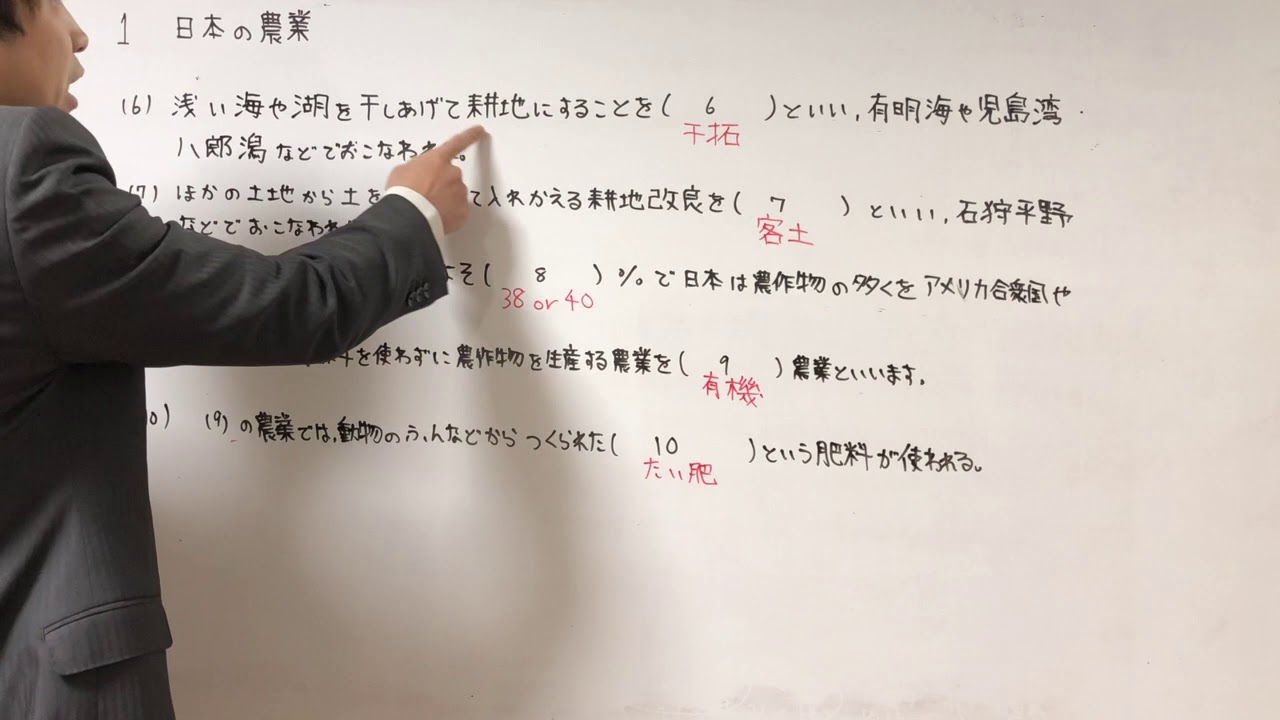 1 日本の農業
(6) 浅い海や湖を干しあげて耕地にすることを( 6 )といい,有明海や児島湾・
干拓
八郎潟などでおこなわれ。
(7) ほかの土地から土を て入れかえる耕地改良を( 7 )といい,石狩平野
客土
などでおこなわれ
よそ( 8 )%で日本は農作物の多くをアメリカ合衆国や
38 or 40
を使わずに農作物を生産する農業を( 9 )農業といいます。
有機
0) (9)の農業では,動物のふんなどからつくられた( 10 )という肥料が使われる。
たい肥